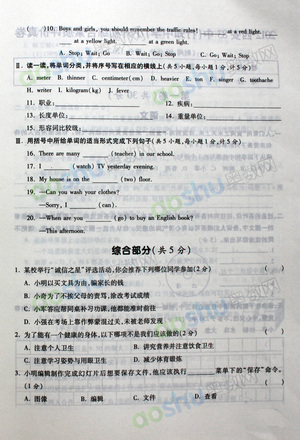 ( )10. Boys and girls, you should remember the traffic rules! ______ at a red light.
______ at a yellow light. ______ at a green light.
A. Stop; Wait; Go B. Stop; Go; Wait C. Wait; Stop; Go
Ⅱ. 读一读,将单词分类,并将序号写在相应的横线上(共5小题,每小题1分,计5分)
A. meter B. thinner C. centimeter(cm) D. heavier E. ton F. singer G. toothache
H. writer I. kilogram(kg) J. fever
11. 职业: 12. 疾病:
13. 长度单位: 14. 重量单位:
15. 形容词比较级:
Ⅲ. 用括号中所给单词的适当形式完成下列句子(共5小题,每小题1分,计5分)
16. There are many ______ (teacher) in our school.
17. I ______ (watch) TV yesterday evening.
18. My house is on the ______ (two) floor.
19. —Can you wash your clothes?
—Sorry, I ______ (can).
20. —When are you ______ (go) to buy an English book?
—This afternoon.
综合部分(共5分)
1. 某校举行"诚信之星"评选活动,你会推荐下列哪位同学参加(2分) ( )
A. 小明以买文具为由,骗家长的钱
B. 小奇为了不挨父母的责骂,涂改考试成绩
C. 小军答应放学后来补习功课,尽管下雨仍如期而至
D. 小强在考场上靠作弊蒙混过关,未被老师发现
2. 为了能有一个健康的身体,以下哪项不是我们应该做的(2分) ( )
A. 注意个人卫生 B. 讲究营养并注意饮食卫生
C. 注意学习姿势与用眼卫生 D. 减少体育锻炼
3. 小明编辑制作完成幻灯片后想要保存文件,他应该执行______菜单下的"保存"命令。
(1分) ( )
A. 图像 B. 编辑 C. 文件 D. 查看